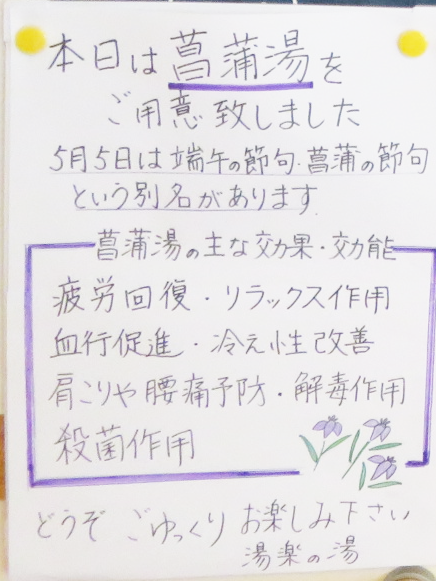 本日は菖蒲湯を
ご用意致しました
5月5日は端午の節句・菖蒲の節句
という別名があります
菖蒲湯の主な効果・効能
疲労回復・リラックス作用
血行促進・冷え性改善
肩こりや腰痛予防・解毒作用
殺菌作用
どうぞ ごゆっくり お楽しみ下さい
湯楽の湯